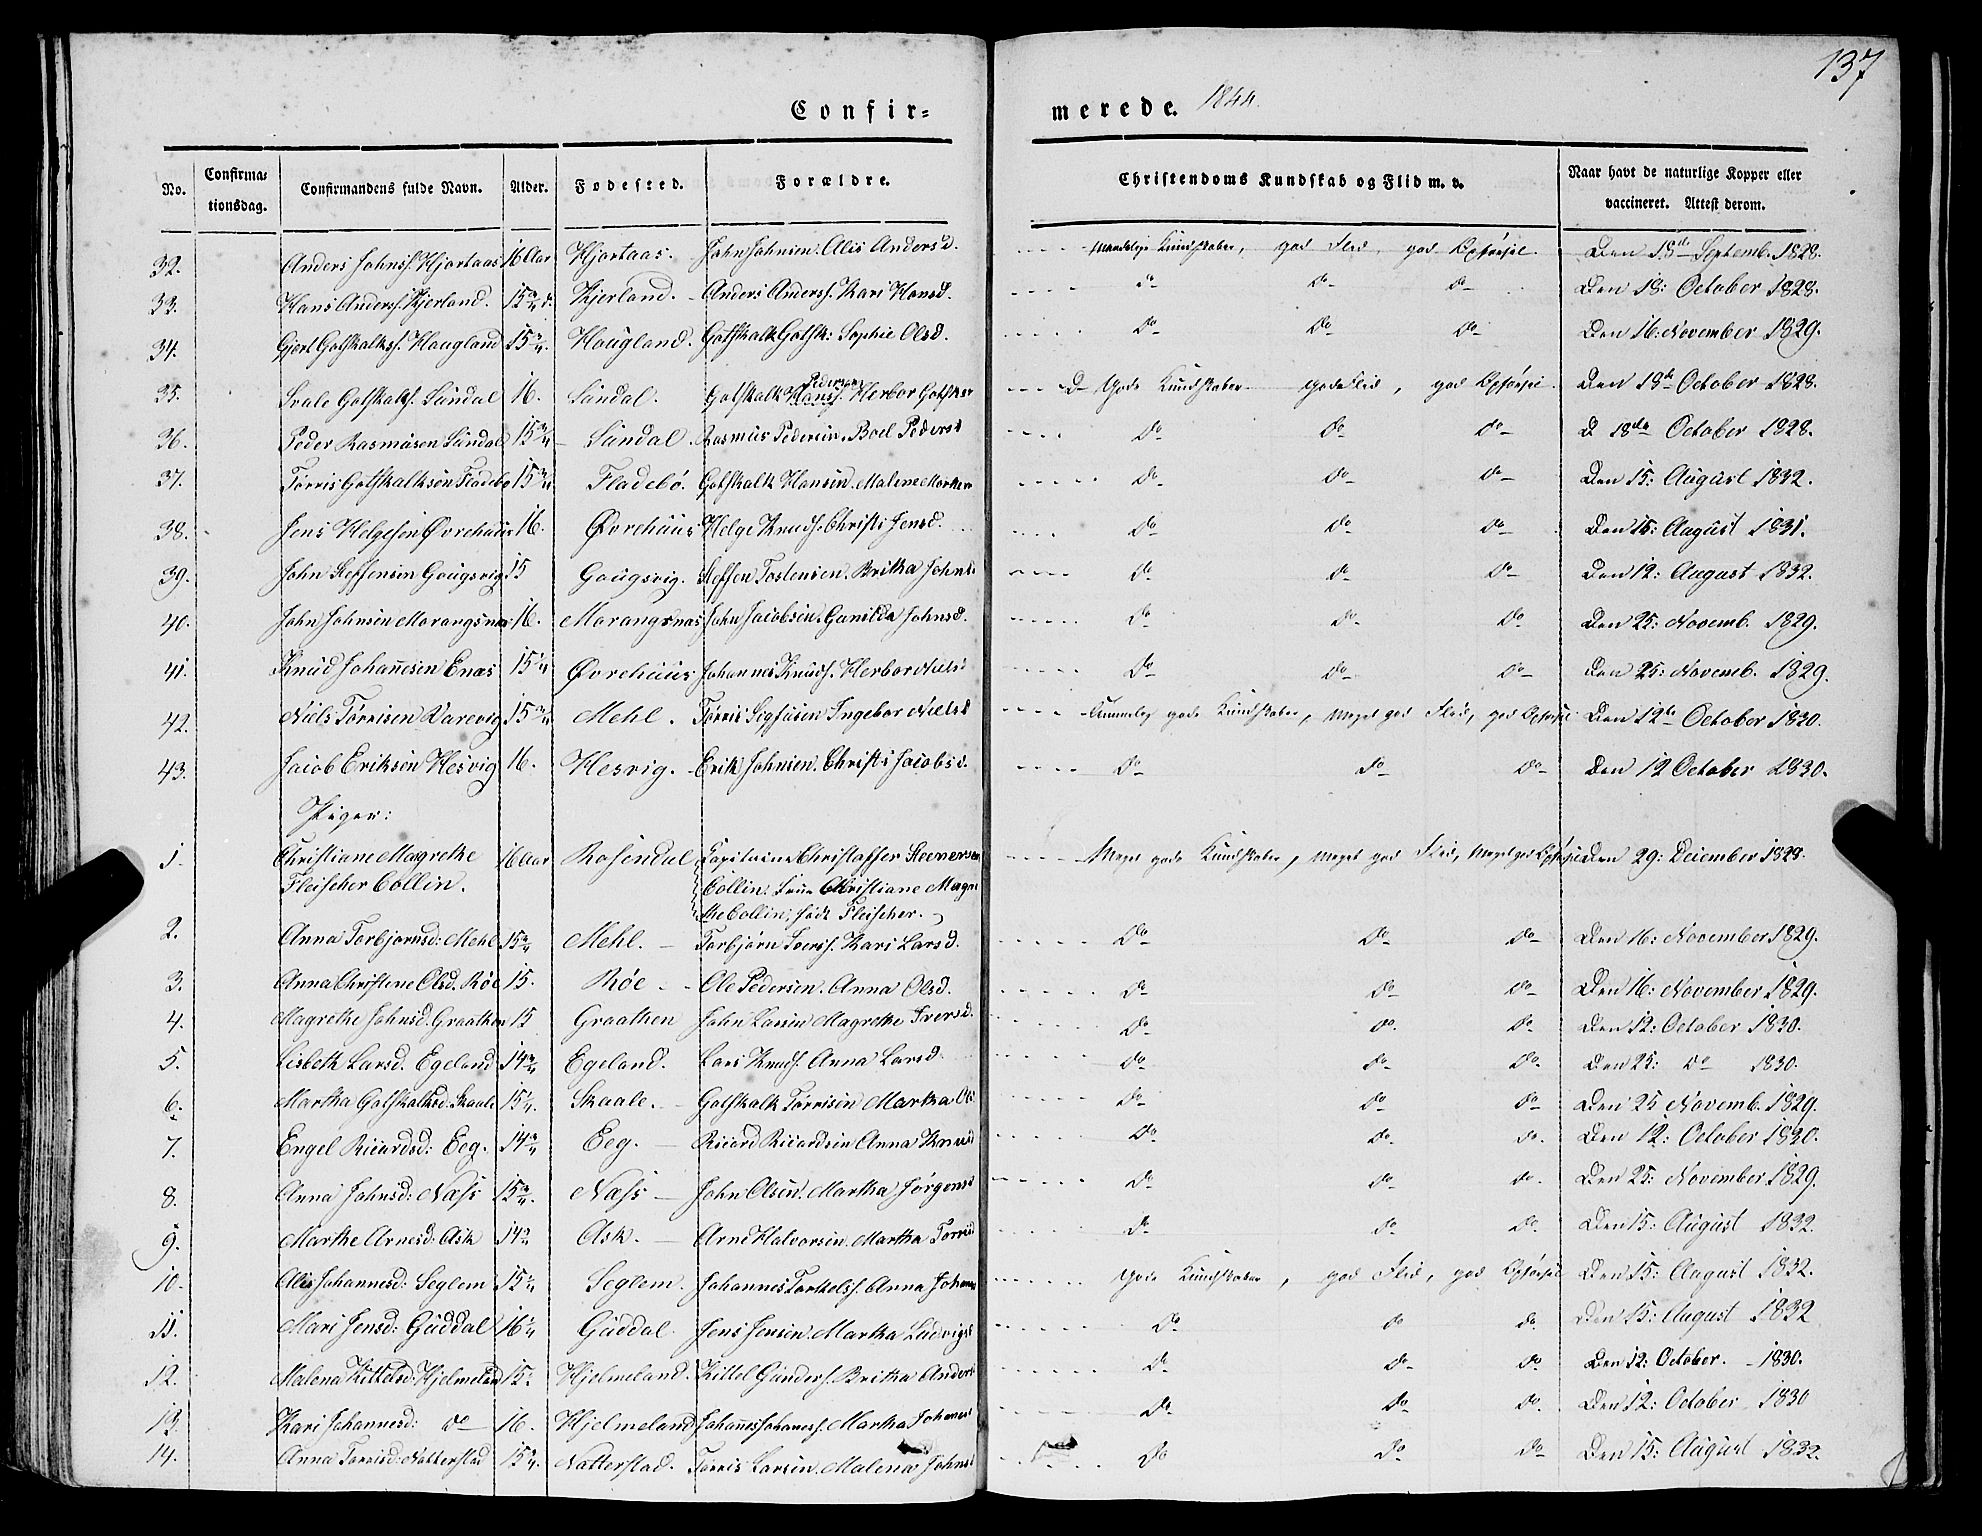 137
Confir-
merede. 1844.
No. Confirma-tionsdag. Confirmandens fulde Navn. Alder. Fødested. Forældre. Christendoms Kundskab og Flid m. v. Naar havt de naturlige Kopper eller vaccineret. Attest derom.
32. Anders Johns. Hjortaas 16 Aar Hjortaas. John Johnsen. Alis Andersd. Kundskaber, god Flid, god Opførsel. Den 18de Septemb. 1828.
33. Hans Anders. Kjerland. 15¾ Kjerland. Anders Anders. Kari Hansd. do do do Den 18: October 1828.
34. Gjert Gotskalks. Hougland 15¾ Hougland. Gotskalk Gotsk: Sophie Olsd. do do do Den 16: November 1829.
35. Gotskalks. Sundal 16. Sundal. Gotskalk Pedersen Herbor Gotsk gode Kundskaber gode Flid, god Opførsel Den 18de October 1828.
36. Peder Rasmusen Sundal 15¾ Sundal. Rasmus Pedersen. Boel Pedersd do do do D 18de October 1828.
37. Tørris Gotskalksen Fladebø 15¾ Fladebø. Gotskalk Hansen. Malene do do do Den 15: August 1832.
38. Jens Helgesen Øvrehuus 16. Øvrehuus Helge Knuds. Christi Jensd. do do do Den 15: August 1831.
39. John Steffensen Gougsvig 15 Gougsvig. Steffen Tostensen. Britha Johnsd. do do do Den 12: August 1832.
40. John Johnsen Morangsnes 16. Morangsnas John Jacobsen. Gunilda Johnsd. do do do Den 25: Novemb. 1829.
41. Knud Johannesen Enæs 15¼ Øvrehuus Johannes Knuds. Herbor Nielsd do do do Den 25: Novemb. 1829.
42. Niels Tørrisen Varevig 15¾ Mehl. Tørris Sjgfusen Ingebor Nielsd gode Kundskaber, meget god Flid, god Opførsel Den 12te October 1830.
43. Jacob Eriksen Hesvig 16. Hesvig. Erik Johnsen. Christi Jacobsd. do do do Den 12 October 1830.
Piger:
1. Christiane Magrethe 16 Aar Rosendal Kapitaine Christoffer Steenersen Meget gode Kundskaber, meget god Flid, meget god Opførsel Den 29: December 1828.
Fleischer Collin. Collin. Frue Christiane Magre
the Collin, født Fleischer.
2. Anna Torbjørnsd: Mehl 15¾ Mehl. Torbjørn Ivers. Kari Larsd. do do do Den 16: November 1829.
3. Anna Christine Olsd. Røe 15. Røe. Ole Pedersen. Anna Olsd. do do do Den 16: November 1829.
4. Magrethe Johnsd. Graathen 15 Graathen John Larsen Magrethe Iversd. do do do Den 12: October 1830.
5. Lisbeth Larsd. Egeland 14¾ Egeland. Lars Knuds. Anna Larsd do do do Den 25: do 1830.
6. Martha Gotskalksd: Skaale 15¼. Skaale. Gotskalk Tørrisen Martha Ols do do do Den 25 Novemb. 1829.
7. Engel Ricardsd: Eeg. 14¾ Eeg. Ricard Ricardsen Anna Knud do do do Den 12: October 1830.
8. Anna Johnsd: Næss 15¾. Næss John Olsen. Martha Jørgens do do do Den 25: November 1829.
9. Marthe Arnesd: Ask 14¾ Ask. Arne Halvorsen. Martha Torris do do do Den 15: August 1832.
10. Alis Johannesd: Seglem 15½ Seglem. Johannes Torkels. Anna Johan gode Kundskaber, god Flid, god Opførsel Den 15: August 1832.
11. Mari Jensd: Guddal 16¼ Guddal. Jens Jensen. Martha Ludvigs do do do Den 15: August 1832
12. Malena Kittelsd: Hjelmeland 15 Hjelmeland. Kittel Gunders. Britha Anders do do do Den 12: October. 1830.
13. Kari Johannesd: do 16. Hjelmeland Johannes Johanes. Martha Johanes do do do Den 12: October 1830
14. Anna Tørrisd: Natterstad 15¾. Natterstad. Tørris Larsen. Malena Johns do do do Den 15: August 1832.